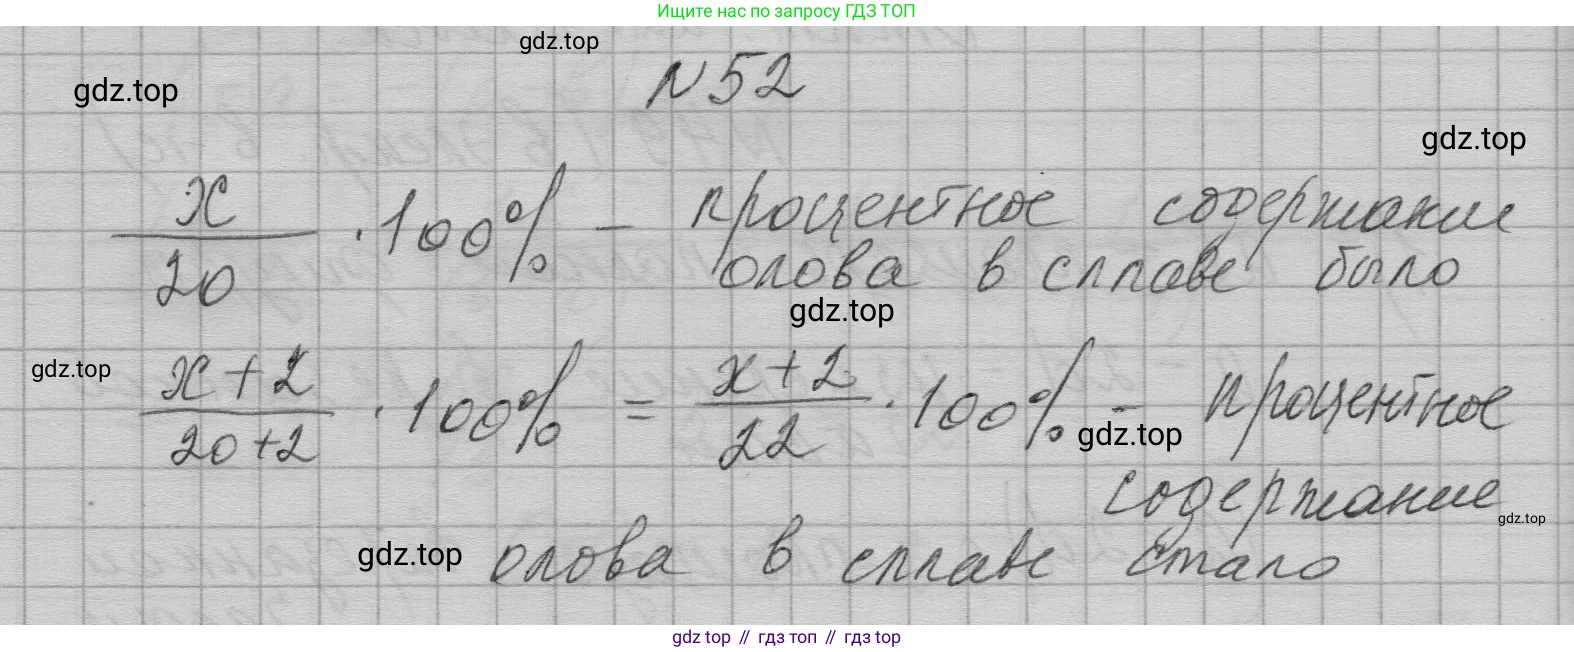 Ищите нас по запросу ГДЗ ТОП
gdz.top
№ 52
gdz.top
gdz.top
x/20 · 100% – процентное содержание
олова в сплаве было
gdz.top
gdz.top
(x+2)/(20+2) · 100% = (x+2)/22 · 100% – процентное
gdz.top
содержание
gdz.top
gdz.top
олова в сплаве стало
gdz top // гдз топ // гдз top